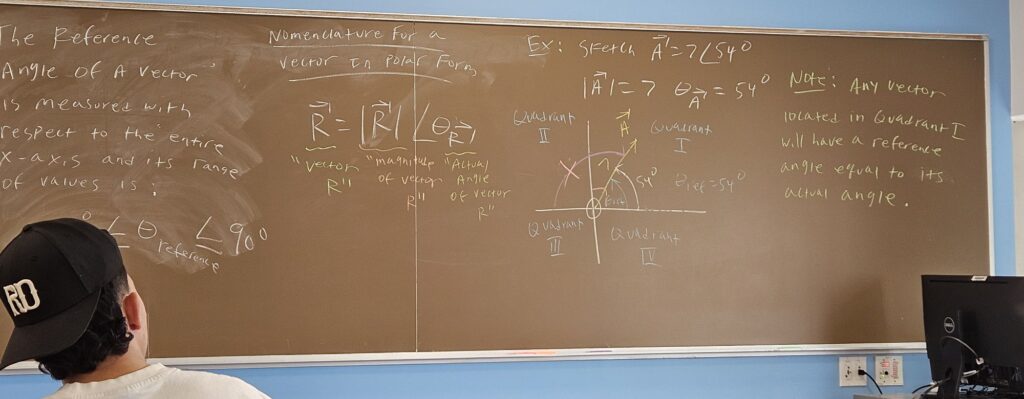 The Reference
Angle of A vector
is measured with
respect to the entire
x-axis and its range
of values is:
0° ≤ θ reference ≤ 90°
Nomenclature For a
vector In Polar Form
R⃗ = |R⃗| ∠θR⃗
"vector R"
"magnitude of vector R"
"Actual Angle of vector R"
Ex: Sketch A⃗ = 7∠54°
|A⃗| = 7 θA⃗ = 54°
Quadrant II
Quadrant I
A⃗
X
7
54°
θref = 54°
θref
Quadrant III
Quadrant IV
Note: Any vector
located in Quadrant I
will have a reference
angle equal to its
actual angle.
RD
DELL